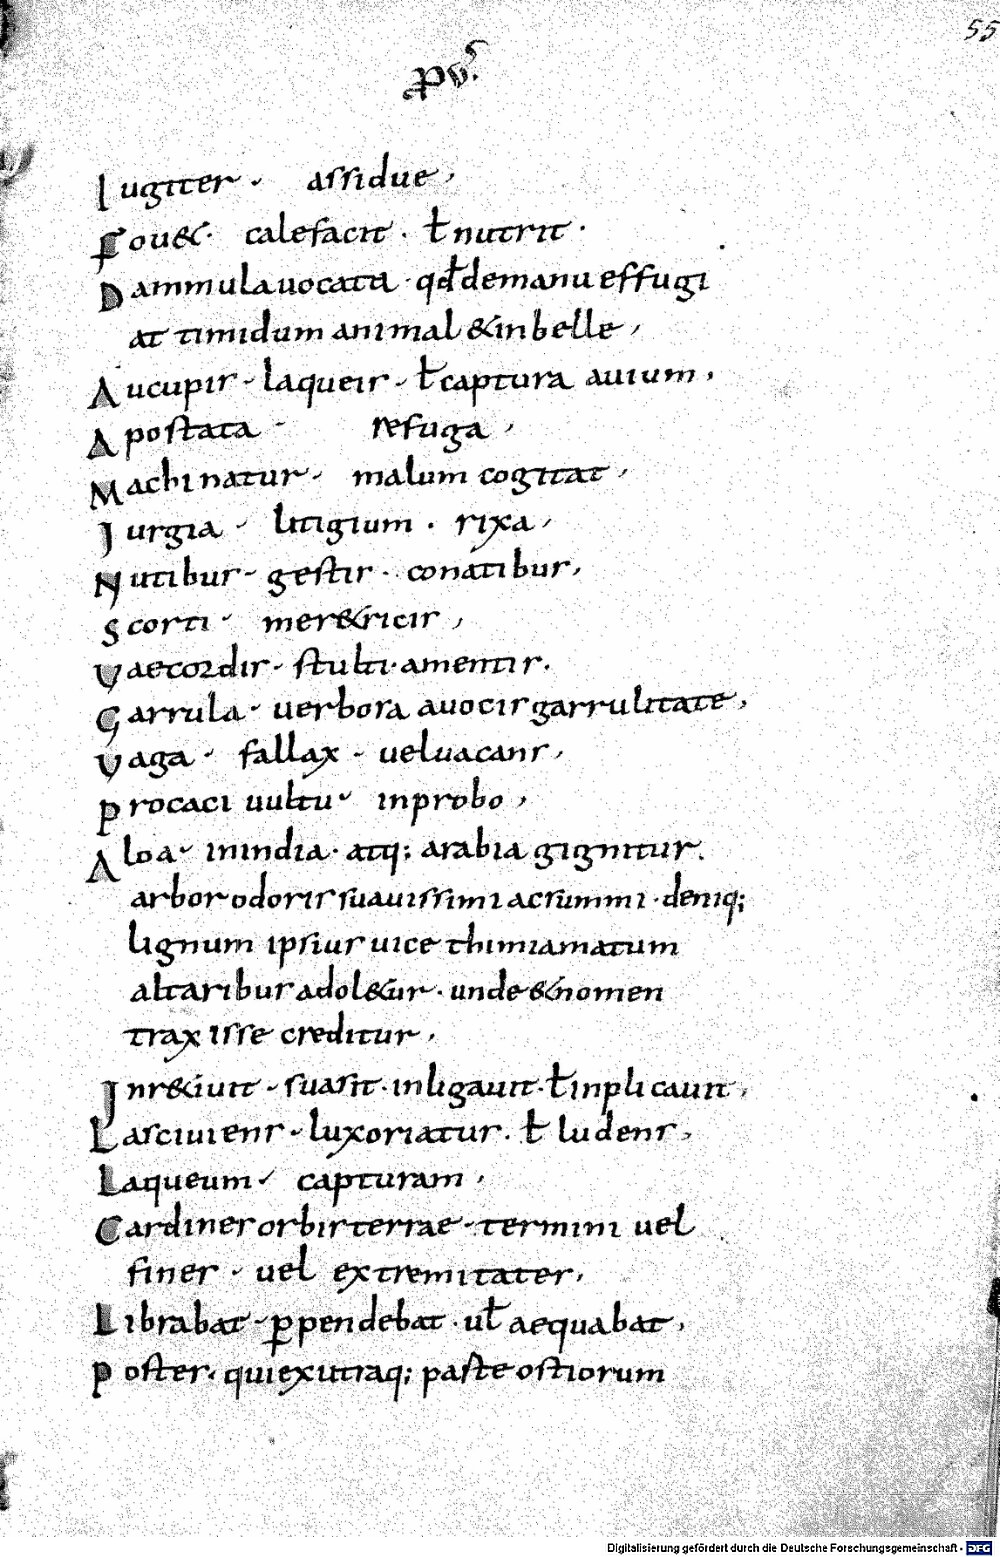 55
ꝓvˢ
Iugiter · assidue,
Fou& · calefacit · ł nutrit ·
Dammulauocata · qđdemanu effugi
at timidum animal &inbelle,
Aucupis · laqueis · ł captura auium,
Apostata · refuga,
Machinatur · malum cogitat,
Iurgia · litigium · rixa,
Nutibus · gestis · conatibus,
Scorti · mer&ricis,
Vaecordis · stulti · amentis.
Garrula · uerbora auocisgarrulitate,
Vaga · fallax · veluacans,
Procaci uultu · inprobo,
Aloa · inindia · atq; arabia gignitur.
arborodorissuauissimi acsummi · deniq;
lignum ipsius uice thimiamatum
altaribus adol&ur · unde &nomen
traxisse creditur,
Inr&iuit · suasit · inligauit · ł inplicauit,
Lasciuiens · luxoriatur · ł ludens,
Laqueum · capturam,
Cardinesorbisterrae · termini uel
fines · uel extremitates,
Librabat · ꝑpendebat · uł aequabat,
Postes · quiexutraq; paste ostiorum
Digitalisierung gefördert durch die Deutsche Forschungsgemeinschaft · DFG